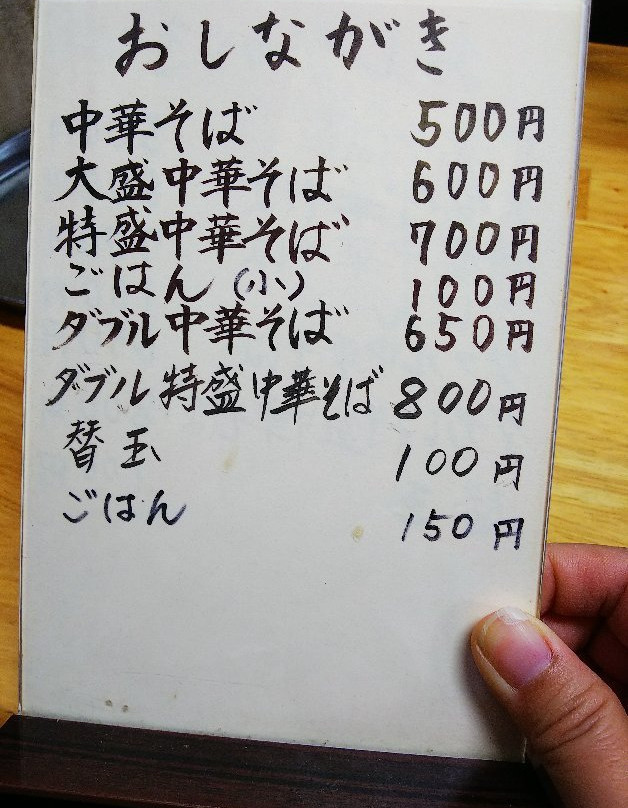 おしながき
中華そば 500円
大盛中華そば 600円
特盛中華そば 700円
ごはん(小) 100円
ダブル中華そば 650円
ダブル特盛中華そば 800円
替玉 100円
ごはん 150円